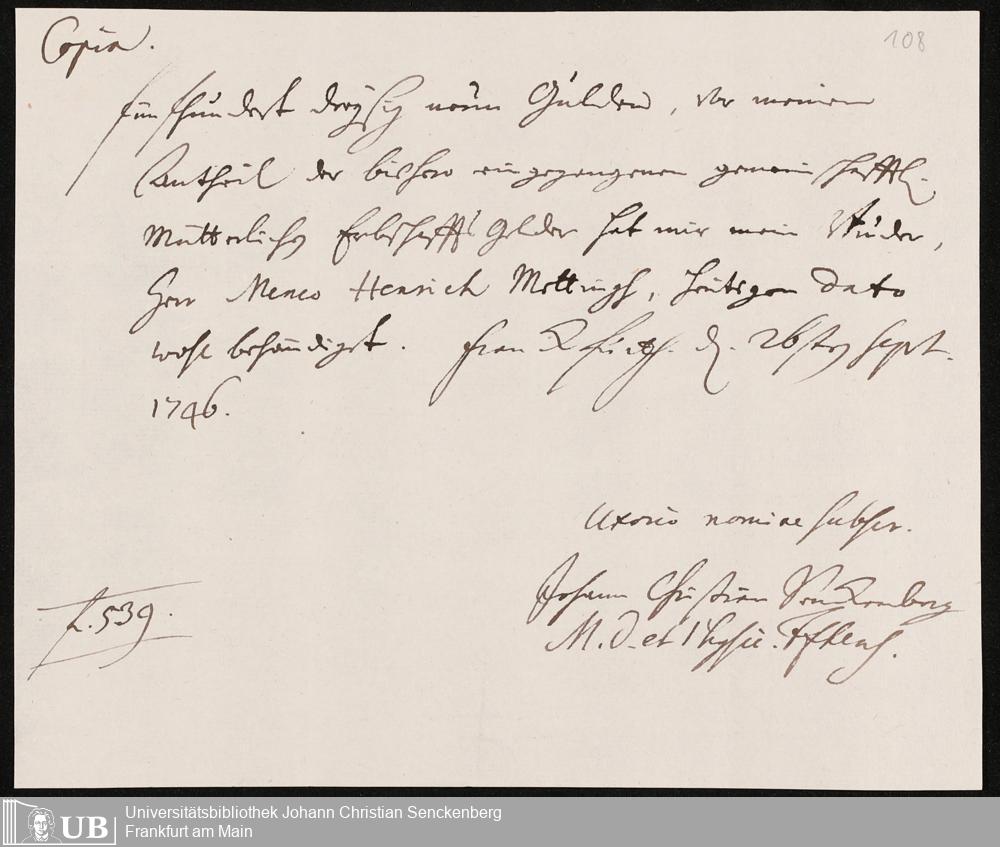 Copia.
108
fünfhundert dreysig neün Gülden, vor meinen
Antheil der bishero eingegangenen gemeinschafftl.
Mütterlichen Erbschaffts Gelder hat mir mein Brüder,
Herr Menco Henrich Mettingh, heütigen Dato
wohl behändigt. Franckfürth. d. 26sten Sept.
1746.
Uxorio nomine subscr.
Johann Christian Senckenberg
M. D. et Physic.
f. 539.
Universitätsbibliothek Johann Christian Senckenberg
Frankfurt am Main
UB